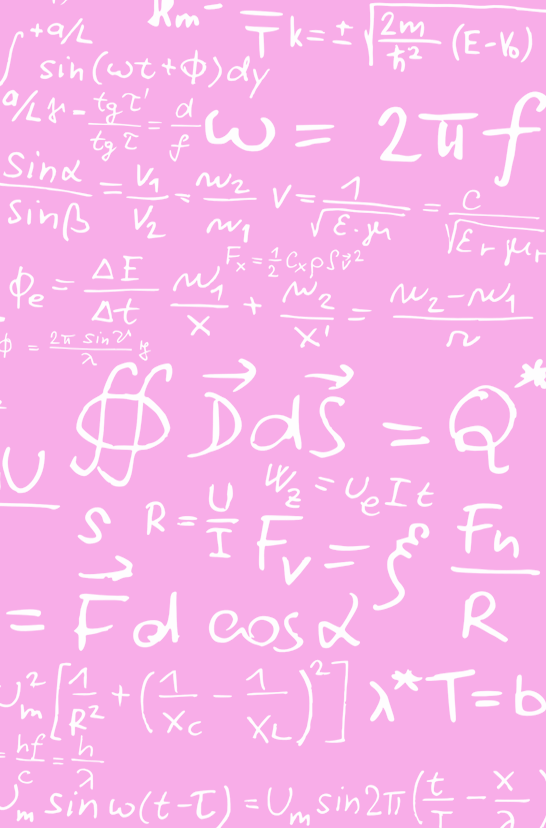 Rm= /T k=±√(2m/ħ² (E-V₀))
∫^+a/L sin(ωt+ϕ)dy
a/L y - tgτ'/tgτ = d/f ω = 2πf
sinα/sinβ = v₁/v₂ = n₂/n₁ v = 1/√(ε·μ) = c/√(εr μr
Fₓ=½CₓρSv²
ϕe = ΔE/Δt n₁/x + n₂/x' = n₂-n₁/r
ϕ = 2π sinϑ/λ y
∯ D⃗dS⃗ = Q*
U
W₂ = UeIt
S R = U/I Fv = ξ Fn/R
= F⃗d cosα
Um²[1/R² + (1/Xc - 1/XL)²] λ*T=b
= hf/c = h/λ
Um sinω(t-τ) = Um sin2π(t/T - x/λ